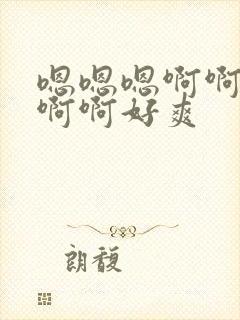 嗯嗯嗯啊啊
啊啊好爽
朗馥